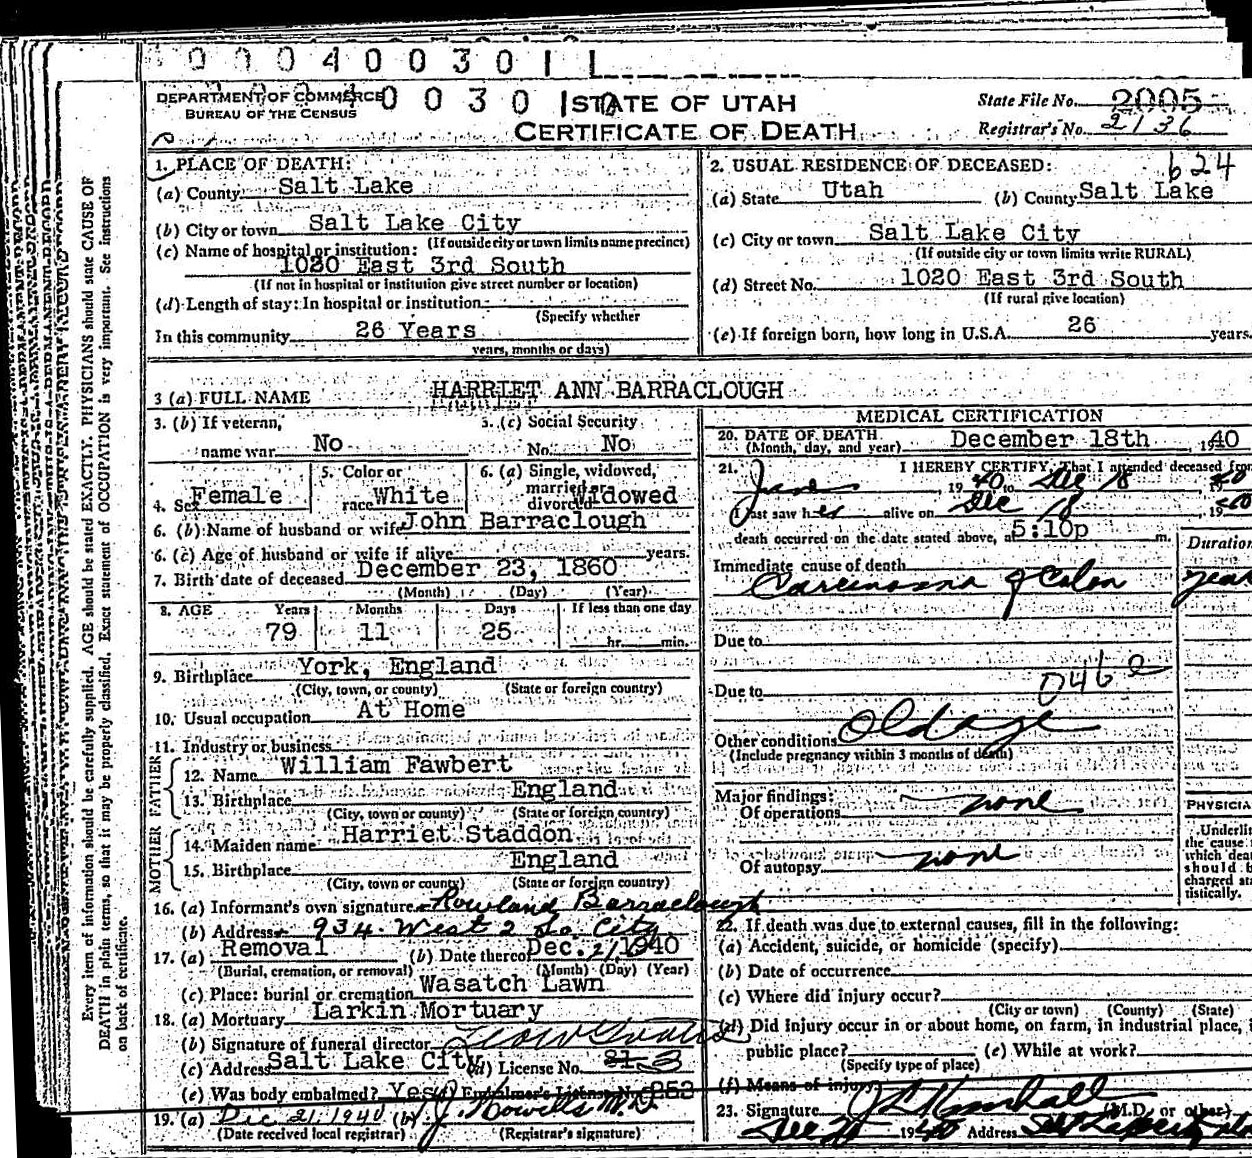 0004003011
DEPARTMENT OF COMMERCE
BUREAU OF THE CENSUS
STATE OF UTAH
CERTIFICATE OF DEATH
State File No. 2005
Registrar's No. 2136
1. PLACE OF DEATH:
(a) County Salt Lake
(b) City or town Salt Lake City
(If outside city or town limits name precinct)
(c) Name of hospital or institution:
1020 East 3rd South
(If not in hospital or institution give street number or location)
(d) Length of stay: In hospital or institution
(Specify whether
In this community 26 Years
years, months or days)
2. USUAL RESIDENCE OF DECEASED: 624
(a) State Utah (b) County Salt Lake
(c) City or town Salt Lake City
(If outside city or town limits write RURAL)
(d) Street No. 1020 East 3rd South
(If rural give location)
(e) If foreign born, how long in U.S.A. 26 years.
3 (a) FULL NAME HARRIET ANN BARRACLOUGH
3. (b) If veteran, name war No
3. (c) Social Security No. No
4. Sex Female
5. Color or race White
6. (a) Single, widowed, married or divorced Widowed
6. (b) Name of husband or wife John Barraclough
6. (c) Age of husband or wife if alive years.
7. Birth date of deceased December 23, 1860
(Month) (Day) (Year)
8. AGE Years Months Days If less than one day
79 11 25 hr. min.
9. Birthplace York, England
(City, town, or county) (State or foreign country)
10. Usual occupation At Home
11. Industry or business
FATHER
12. Name William Fawbert
13. Birthplace England
(City, town or county) (State or foreign country)
MOTHER
14. Maiden name Harriet Staddon
15. Birthplace England
(City, town or county) (State or foreign country)
16. (a) Informant's own signature Rowland Barraclough
(b) Address 934 West 2 So. City
17. (a) Removal (b) Date thereof Dec. 21, 1940
(Burial, cremation, or removal) (Month) (Day) (Year)
(c) Place: burial or cremation Wasatch Lawn
18. (a) Mortuary Larkin Mortuary
(b) Signature of funeral director
(c) Address Salt Lake City (d) License No.
(e) Was body embalmed? Yes Embalmer's License No.
19. (a) Dec 21, 1940 (b) J. Howells M.D
(Date received local registrar) (Registrar's signature)
MEDICAL CERTIFICATION
20. DATE OF DEATH
(Month, day, and year) December 18th, 1940
21. I HEREBY CERTIFY, That I attended deceased from
June, 1940 to Dec 18, 1940
I last saw her alive on Dec 18, 1940
death occurred on the date stated above, at 5:10p m.
Duration
Immediate cause of death
Carcinoma of Colon year
Due to
Due to
Other conditions Old age
(Include pregnancy within 3 months of death)
Major findings:
Of operations none
Of autopsy none
PHYSICIA
Underli
the cause
which dea
should b
charged sta
tistically.
22. If death was due to external causes, fill in the following:
(a) Accident, suicide, or homicide (specify)
(b) Date of occurrence
(c) Where did injury occur?
(City or town) (County) (State)
(d) Did injury occur in or about home, on farm, in industrial place,
public place? (e) While at work?
(Specify type of place)
(f) Means of injury
23. Signature (M.D. or other)
Dec 20 1940 Address
Every item of information should be carefully supplied. AGE should be stated EXACTLY. PHYSICIANS should state CAUSE OF
DEATH in plain terms, so that it may be properly classified. Exact statement of OCCUPATION is very important. See instructions
on back of certificate.